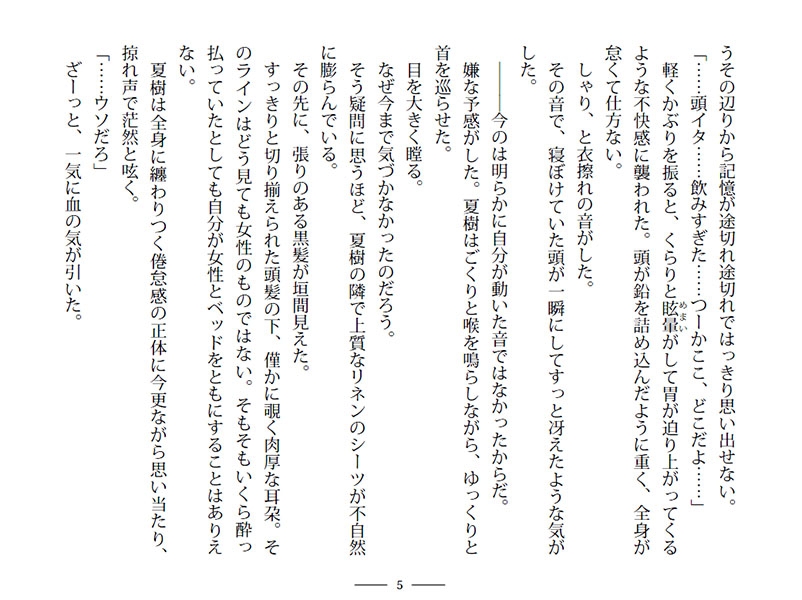 うその辺りから記憶が途切れ途切れではっきり思い出せない。
「……頭イタ……飲みすぎた……つーかここ、どこだよ……」
軽くかぶりを振ると、くらりと眩暈がして胃が迫り上がってくる
めまい
ような不快感に襲われた。頭が鉛を詰め込んだように重く、全身が
怠くて仕方ない。
しゃり、と衣擦れの音がした。
その音で、寝ぼけていた頭が一瞬にしてすっと冴えたような気が
した。
―――今のは明らかに自分が動いた音ではなかったからだ。
嫌な予感がした。夏樹はごくりと喉を鳴らしながら、ゆっくりと
首を巡らせた。
目を大きく瞠る。
なぜ今まで気づかなかったのだろう。
そう疑問に思うほど、夏樹の隣で上質なリネンのシーツが不自然
に膨らんでいる。
その先に、張りのある黒髪が垣間見えた。
すっきりと切り揃えられた頭髪の下、僅かに覗く肉厚な耳朶。そ
のラインはどう見ても女性のものではない。そもそもいくら酔っ
払っていたとしても自分が女性とベッドをともにすることはありえ
ない。
夏樹は全身に纏わりつく倦怠感の正体に今更ながら思い当たり、
掠れ声で茫然と呟く。
「……ウソだろ」
ざーっと、一気に血の気が引いた。
5